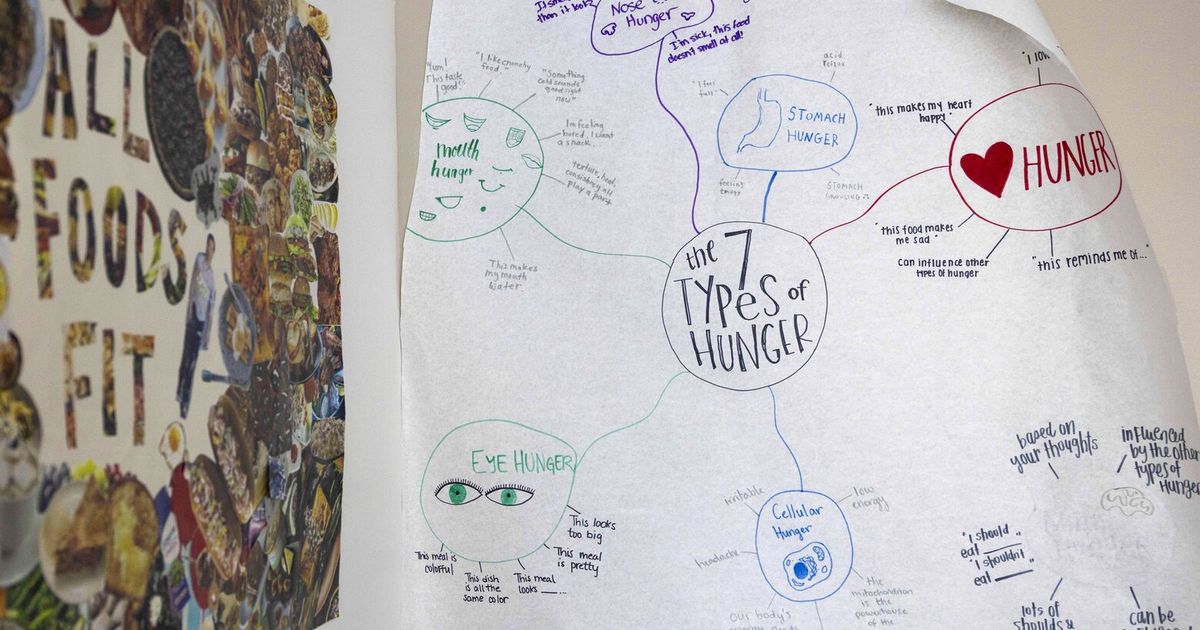 ALL
FOODS
FIT
than it looks
Nose
Hunger
I'm sick, this food
doesn't smell at all!
Yum!
This taste
good!
"I like crunchy
food."
"Something
cold sounds
good right
now"
I'm feeling
bored, I want
a snack.
texture, heat,
consistency all
play a part
mouth
hunger
This makes
my mouth
water
acid
reflux
"I feel
full"
STOMACH
HUNGER
feeling
empty
STOMACH
GROWLING
"I love
"this makes my heart
happy"
HUNGER
"this food makes
me sad"
can influence other
types of hunger
"this reminds me of..."
the 7
TYPES of
HUNGER
EYE HUNGER
This meal is
colorful
This dish
is all the
same color
This meal
looks ___...
This meal
is pretty
This looks
too big
Cellular
Hunger
irritable
low
energy
headache
our body's
the
mitochondrion
is the
powerhouse
of the
based on
your thoughts
influenced
by the other
types of
hunger
"I should
eat ___"
"I shouldn't
eat ___"
lots of
shoulds &
can be